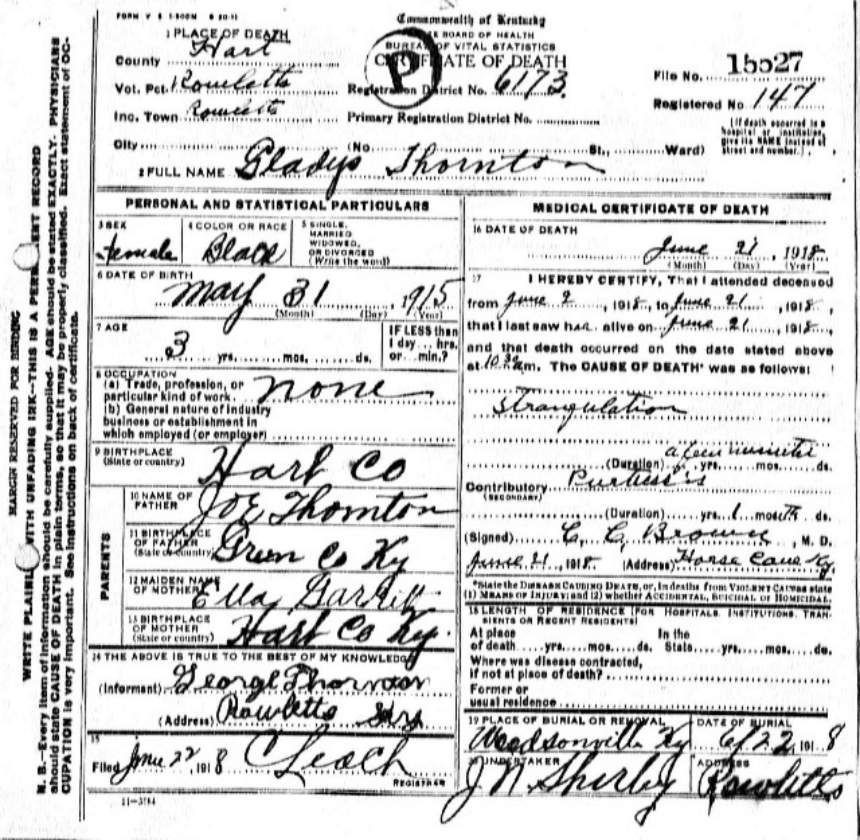 FORM V S
Commonwealth of Kentucky
1 PLACE OF DEATH
STATE BOARD OF HEALTH
BUREAU OF VITAL STATISTICS
County Hart
CERTIFICATE OF DEATH
P
File No. 15527
Vot. Pct. Rowletts
Registration District No. 6173
Registered No 147
Inc. Town Rowletts
Primary Registration District No.
City (No St., Ward)
(If death occurred in a hospital or institution, give its NAME instead of street and number.)
2 FULL NAME Gladys Thornton
PERSONAL AND STATISTICAL PARTICULARS
3 SEX Female
4 COLOR OR RACE Black
5 SINGLE, MARRIED WIDOWED, OR DIVORCED (Write the word)
6 DATE OF BIRTH
May 31 1915
(Month) (Day) (Year)
7 AGE
3 yrs. mos. ds.
IF LESS than 1 day hrs. or min.?
8 OCCUPATION
(a) Trade, profession, or particular kind of work. none
(b) General nature of industry
business or establishment in
which employed (or employer)
9 BIRTHPLACE
(State or country) Hart Co
PARENTS
10 NAME OF FATHER Joe Thornton
11 BIRTHPLACE OF FATHER (State or country) Green Co Ky
12 MAIDEN NAME OF MOTHER Ella Garrett
13 BIRTHPLACE OF MOTHER (State or country) Hart Co Ky.
14 THE ABOVE IS TRUE TO THE BEST OF MY KNOWLEDGE
(Informant) George Thornton
(Address) Rowletts Ky
15
Filed June 22, 1918 C Leach
REGISTRAR
11-3184
MEDICAL CERTIFICATE OF DEATH
16 DATE OF DEATH
June 21, 1918
(Month) (Day) (Year)
17 I HEREBY CERTIFY, That I attended deceased
from June 2, 1918, to June 21, 1918,
that I last saw her alive on June 21, 1918,
and that death occurred on the date stated above
at 10:30 am. The CAUSE OF DEATH* was as follows:
Strangulation
a few minutes
(Duration) yrs. mos. ds.
Contributory Purtussis
(SECONDARY)
(Duration) yrs. 1 mos. ds.
(Signed) C. C. Brown, M. D.
June 21, 1918 (Address) Horse Cave Ky
*State the DISEASE CAUSING DEATH, or, in deaths from VIOLENT CAUSES state
(1) MEANS OF INJURY; and (2) whether ACCIDENTAL, SUICIDAL or HOMICIDAL.
18 LENGTH OF RESIDENCE (FOR HOSPITALS, INSTITUTIONS, TRANSIENTS OR RECENT RESIDENTS)
At place of death yrs. mos. ds. In the State yrs. mos. ds.
Where was disease contracted,
if not at place of death?
Former or
usual residence
19 PLACE OF BURIAL OR REMOVAL
Woodsonville Ky
DATE OF BURIAL
6/22, 1918
20 UNDERTAKER
J N Shirley
ADDRESS
Rowletts
MARGIN RESERVED FOR BINDING
WRITE PLAINLY WITH UNFADING INK--THIS IS A PERMANENT RECORD
N. B.--Every item of information should be carefully supplied. AGE should be stated EXACTLY. PHYSICIANS
should state CAUSE OF DEATH in plain terms, so that it may be properly classified. Exact statement of OC-
CUPATION is very important. See instructions on back of certificate.